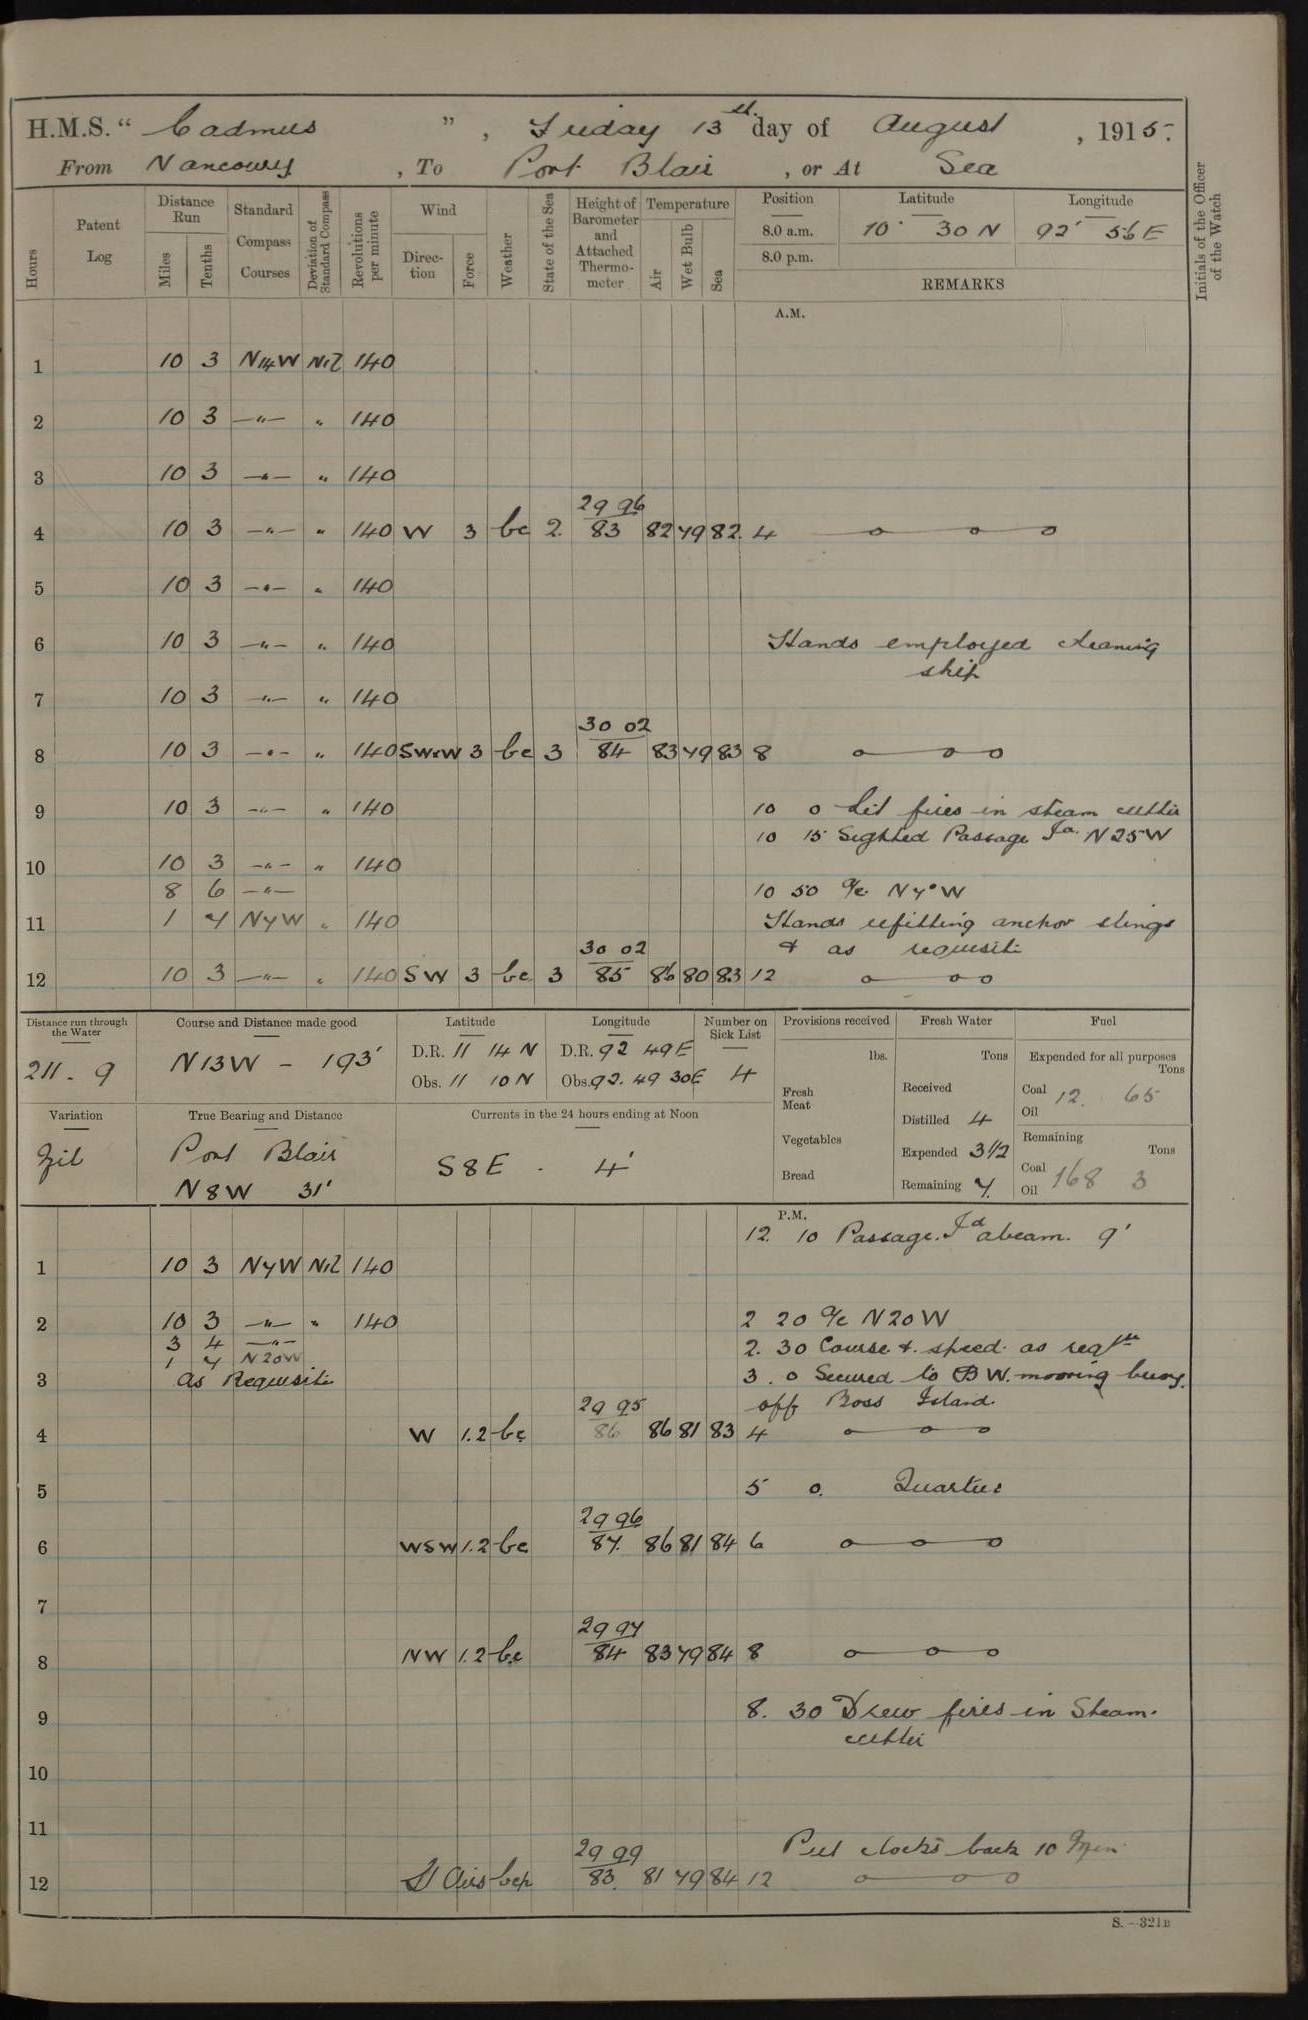 H.M.S. "Cadmus", Friday 13th day of August, 1915.
From Nancowry, To Port Blair, or At Sea
Hours
Patent Log
Distance Run
Miles
Tenths
Standard Compass Courses
Deviation of Standard Compass
Revolutions per minute
Wind
Direction
Force
Weather
State of the Sea
Height of Barometer and Attached Thermometer
Temperature
Air
Wet Bulb
Sea
Position
8.0 a.m.
8.0 p.m.
Latitude
10° 30 N
Longitude
92° 56 E
REMARKS
Initials of the Officer of the Watch
A.M.
1 10 3 N14W Nil 140
2 10 3 —"— " 140
3 10 3 —"— " 140
29 96
4 10 3 —"— " 140 W 3 bc 2 83 82 79 82 4 o o o
5 10 3 —"— " 140
6 10 3 —"— " 140 Hands employed cleaning
ship
7 10 3 —"— " 140
30 02
8 10 3 —"— " 140 SWxW 3 bc 3 84 83 79 83 8 o o o
9 10 3 —"— " 140 10 0 Lit fires in steam cutter
10 15 Sighted Passage Id. N25W
10 10 3 —"— " 140
8 6 —"— 10 50 a/c N7°W
11 1 7 N7W " 140 Hands refitting anchor slings
30 02 & as requisite
12 10 3 —"— " 140 SW 3 bc 3 85 86 80 83 12 o o o
Distance run through the Water
211.9
Course and Distance made good
N13W - 193'
Latitude
D.R. 11 14 N
Obs. 11 10 N
Longitude
D.R. 92 49 E
Obs. 92. 49 30E
Number on Sick List
4
Provisions received
lbs.
Fresh Meat
Vegetables
Bread
Fresh Water
Tons
Received
Distilled 4
Expended 3 1/2
Remaining 7.
Fuel
Expended for all purposes
Tons
Coal 12. 65
Oil
Remaining
Tons
Coal 168 3
Oil
Variation
True Bearing and Distance
Port Blair
N8W 31'
Currents in the 24 hours ending at Noon
S8E . 4'
P.M.
12. 10 Passage Id abeam. 9'
1 10 3 N7W Nil 140
2 10 3 —"— " 140 2 20 a/c N20W
3 4 —"— 2. 30 Course & speed as reqte
1 7 N20W
3 as Requisite 3. 0 Secured to B W. mooring buoy.
29 95 off Ross Island.
4 W 1.2 bc 86 86 81 83 4 o o o
5 5 0. Quarters
29 96
6 WSW 1.2 bc 87. 86 81 84 6 o o o
7
29 97
8 NW 1.2 bc 84 83 79 84 8 o o o
9 8. 30 Drew fires in Steam.
cutter
10
11 Put clocks back 10 Min
29 99
12 Lt Airs bcp 83. 81 79 84 12 o o o
S.—321B